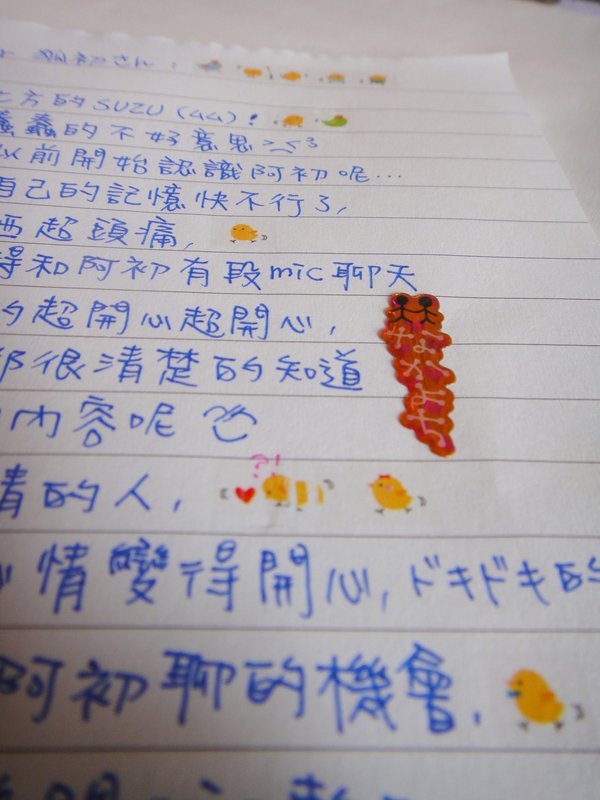 阿初さん:
方的SUZU(44)!
蠢的不好意思
以前開始認識阿初呢…
自己的記憶快不行了,
西超頭痛,
得和阿初有段mic聊天
的超開心超開心,
那很清楚的知道
內容呢
なかよち
情的人,
?!
心情變得開心,ドキドキ的
阿初聊的機會,